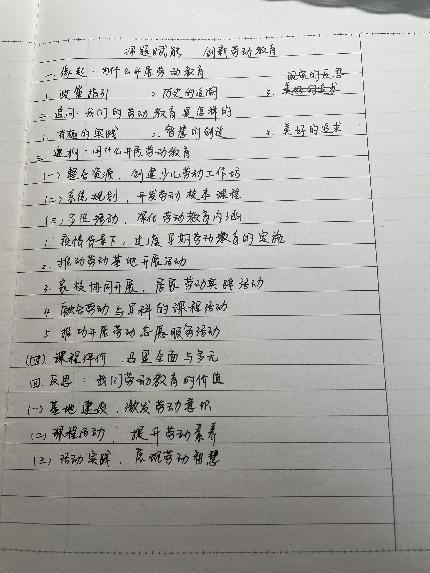 课题赋能 创新劳动教育
一、缘起：为什么开展劳动教育
1. 政策指引 2. 历史的追问 3. 现实的反思
二、追问：我们的劳动教育是怎样的
1. 有趣的实践 2. 智慧的创造 3. 美好的追求
三、建构：用什么开展劳动教育
(一) 整合资源，创建少儿劳动工作坊
(二) 系统规划，开发劳动校本课程
(三) 多些活动，深化劳动教育内涵
1. 疫情背景下，过度早期劳动教育的实施
2. 推动劳动基地开展活动
3. 家校协同开展，居家劳动实践活动
4. 融合劳动与学科的课程活动
5. 推动开展劳动志愿服务活动
(四) 课程评价，凸显全面与多元
四、反思：我们劳动教育的价值
(一) 基地建设，激发劳动意识
(二) 课程活动，提升劳动素养
(三) 活动实践，展现劳动智慧